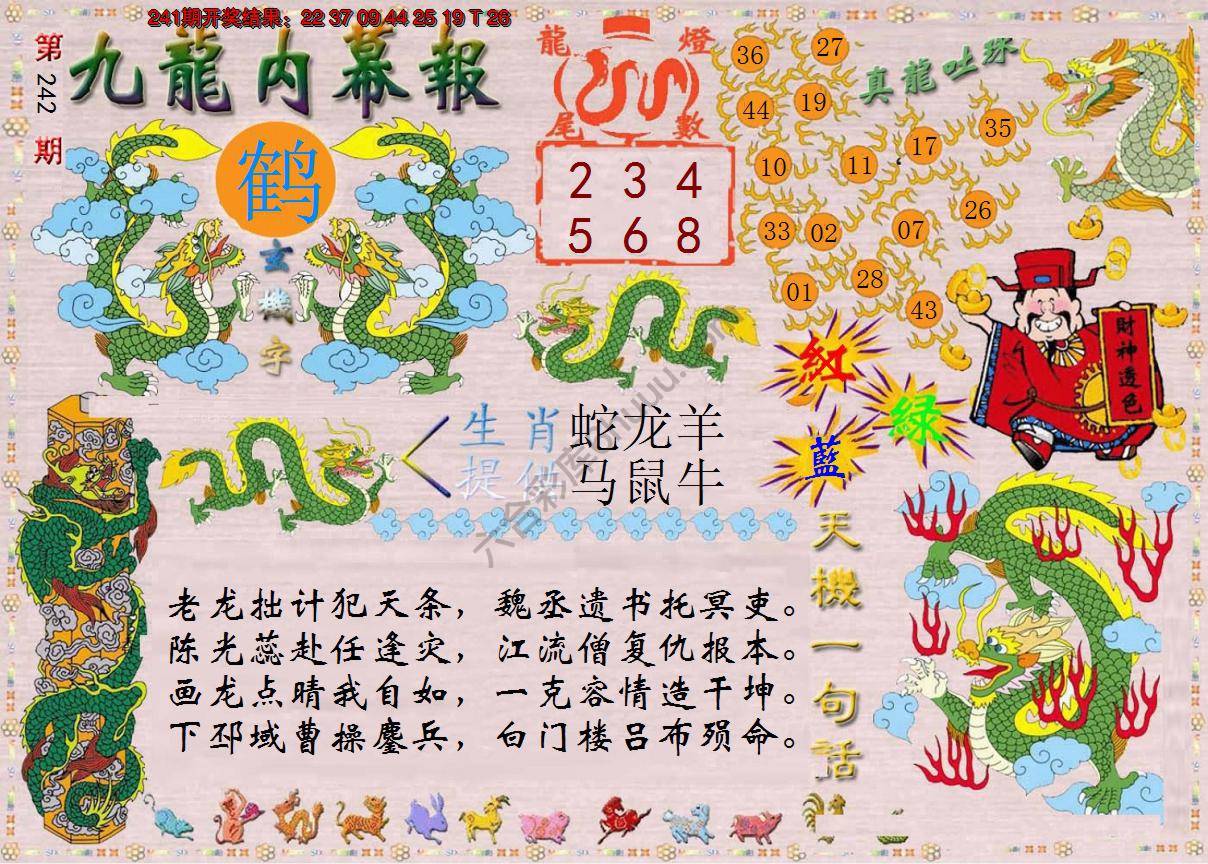 241期开奖结果：22 37 09 44 25 19 T 26
第242期
九龍内幕報
鹤
玄機字
龍燈
尾數
2 3 4
5 6 8
真龍吐珠
36
27
44
19
10
11
17
35
33
02
07
26
01
28
43
財神透色
紅
綠
藍
生肖 蛇龙羊
提供 马鼠牛
天機一句話
老龙拙计犯天条，魏丞遗书托冥吏。
陈光蕊赴任逢灾，江流僧复仇报本。
画龙点晴我自如，一克容情造干坤。
下邳城曹操鏖兵，白门楼吕布殒命。